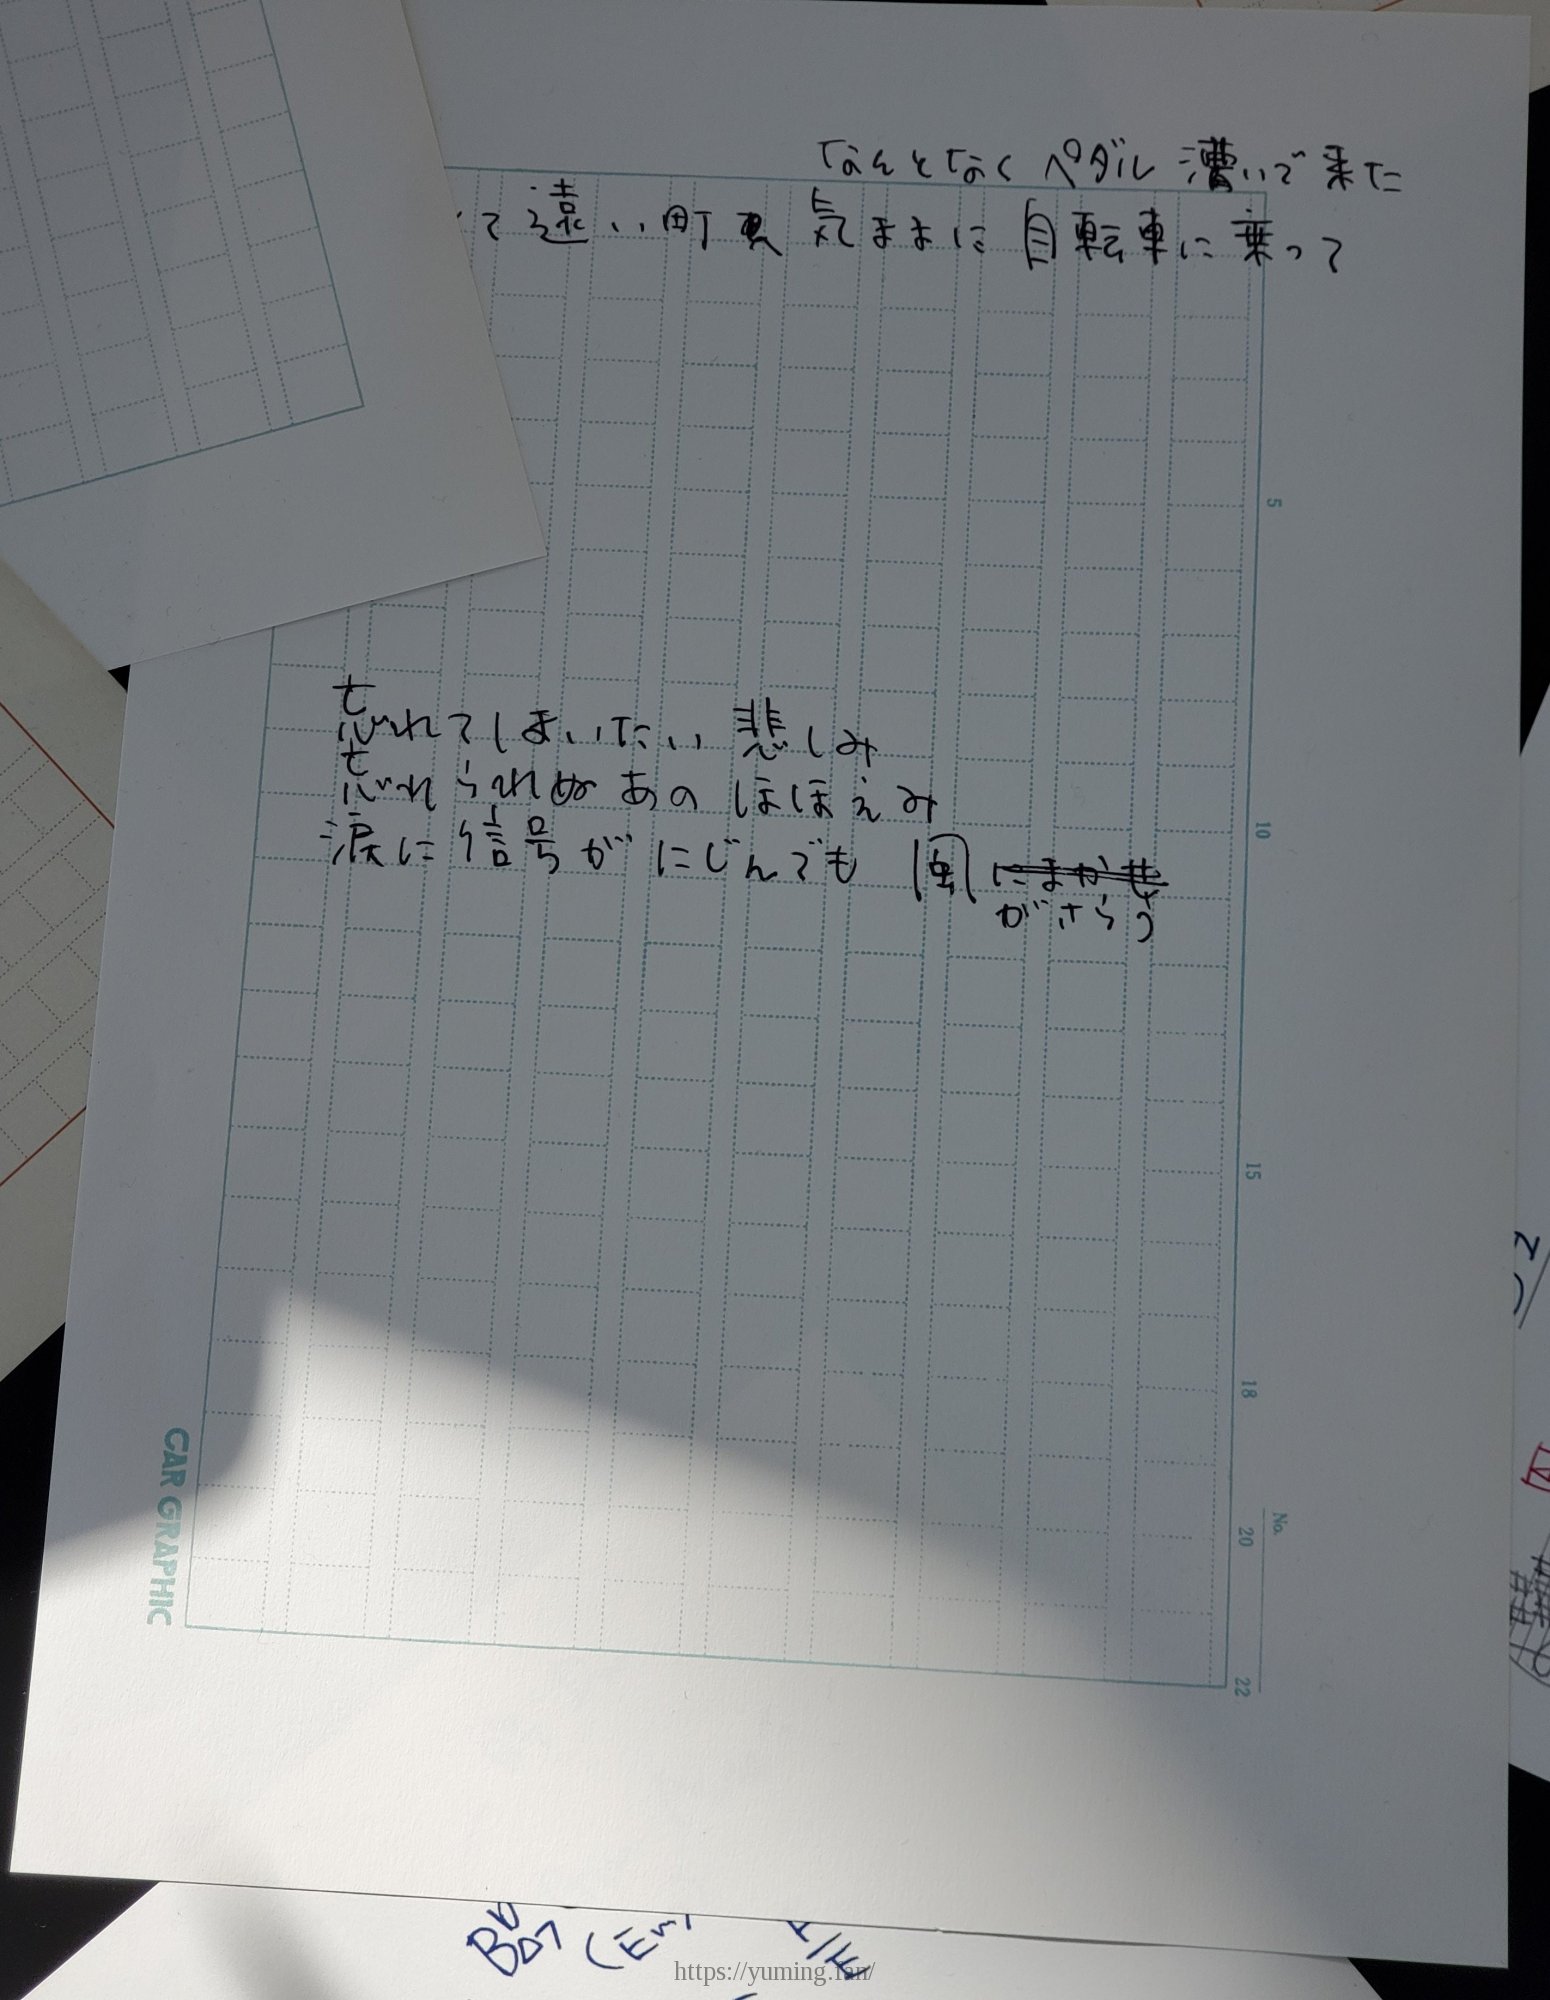 なんとなくペダル漕いで来た
て遠い町へ気ままに自転車に乗って
忘れてしまいたい悲しみ
忘れられぬあのほほえみ
涙に信号がにじんでも 風にまかせ
がさらう
5
10
15
18
No.
20
22
CAR GRAPHIC
https://yuming.fan/